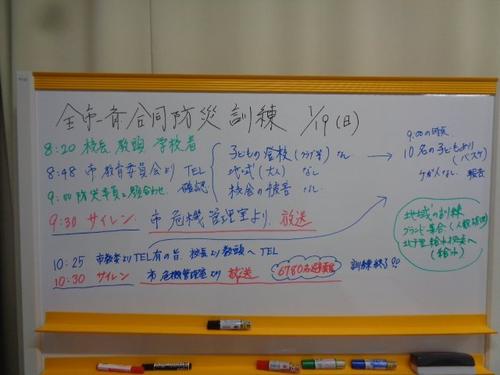 全市一斉合同防災訓練 1/19(日)
8:20 校長 教頭 学校着
8:48 市教育委員会より TEL
確認
子どもの登校(クラブ等) なし
地域(大人) なし
校舎の被害 なし
9:00の時点
10名の子どもあり
(バスケ)
ケガなし 報告
9:00 防災
9:30 サイレン 市危機管理室より 放送
地域の訓練
グランド集合(人数確認)
(給水)
10:25 市教委よりTEL有の旨 校長より教頭へ TEL
10:30 サイレン 市危機管理室より 放送
訓練終了!!